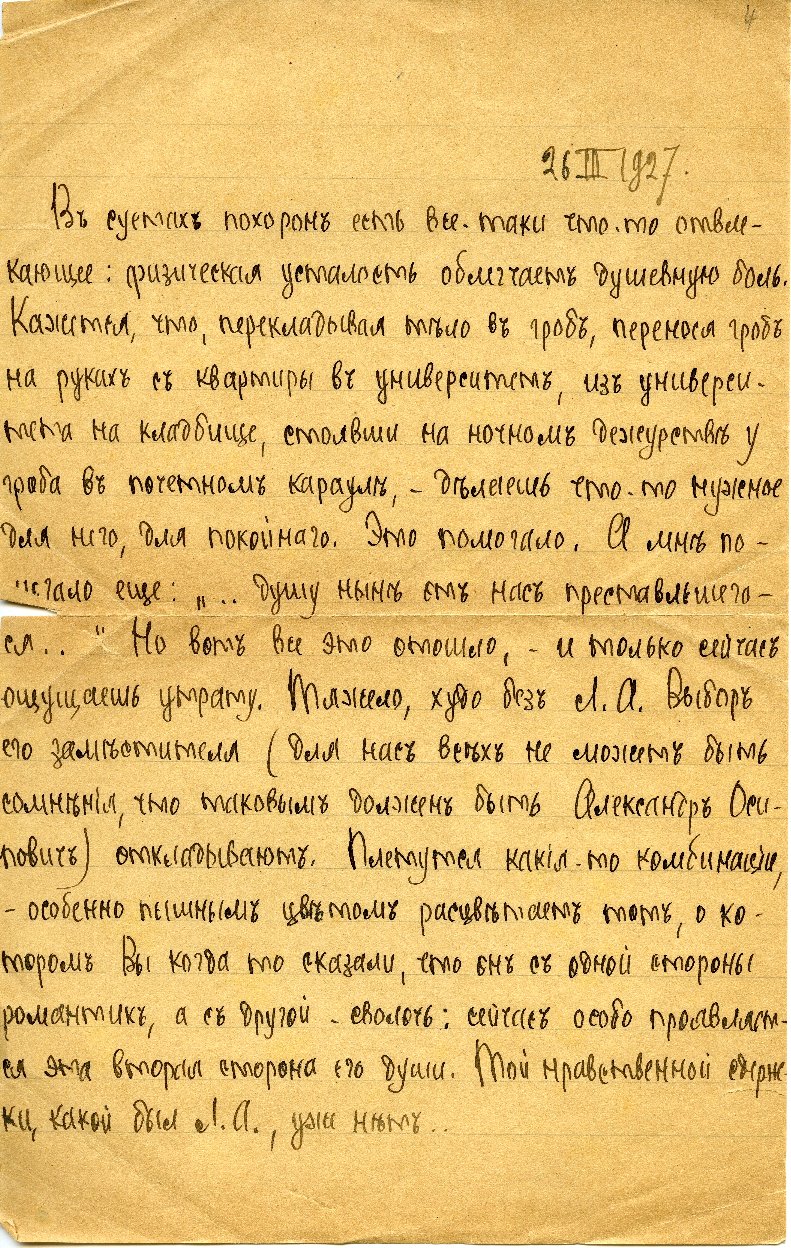 4
26 III 1927.
Въ суетахъ похоронъ есть все-таки что-то отвле-
кающее: физическая усталость облегчаетъ душевную боль.
Кажется, что, перекладывая тѣло въ гробъ, перенося гробъ
на рукахъ съ квартиры въ университетъ, изъ универси-
тета на кладбище, стоявши на ночномъ дежурствѣ у
гроба въ почетномъ караулѣ, - дѣлаешь что-то нужное
для него, для покойнаго. Это помогало. А мнѣ по-
могало еще: „.. душу нынѣ отъ насъ преставльшего-
ся.. " Но вотъ все это отошло, - и только сейчасъ
ощущаешь утрату. Тяжело, худо безъ Л.А. Выборъ
его замѣстителя (для насъ всѣхъ не можетъ быть
сомнѣнія, что таковымъ долженъ быть Александръ Оси-
повичъ) откладываютъ. Плетутся какія-то комбинаціи,
- особенно пышнымъ цвѣтомъ расцвѣтаетъ тотъ, о ко-
торомъ Вы когда то сказали, что онъ съ одной стороны
романтикъ, а съ другой - сволочь: сейчасъ особо проявляет-
ся эта вторая сторона его души. Той нравственной сдерж-
ки, какой былъ Л.А., уже нѣтъ..